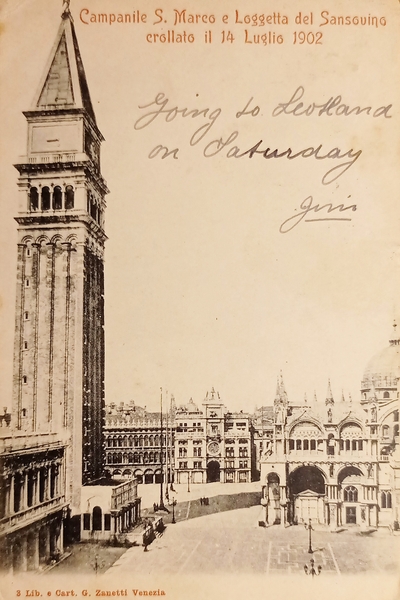 Campanile S. Marco e Loggetta del Sansovino
crollato il 14 Luglio 1902
Going to Scotland
on Saturday
3 Lib. e Cart. G. Zanetti Venezia